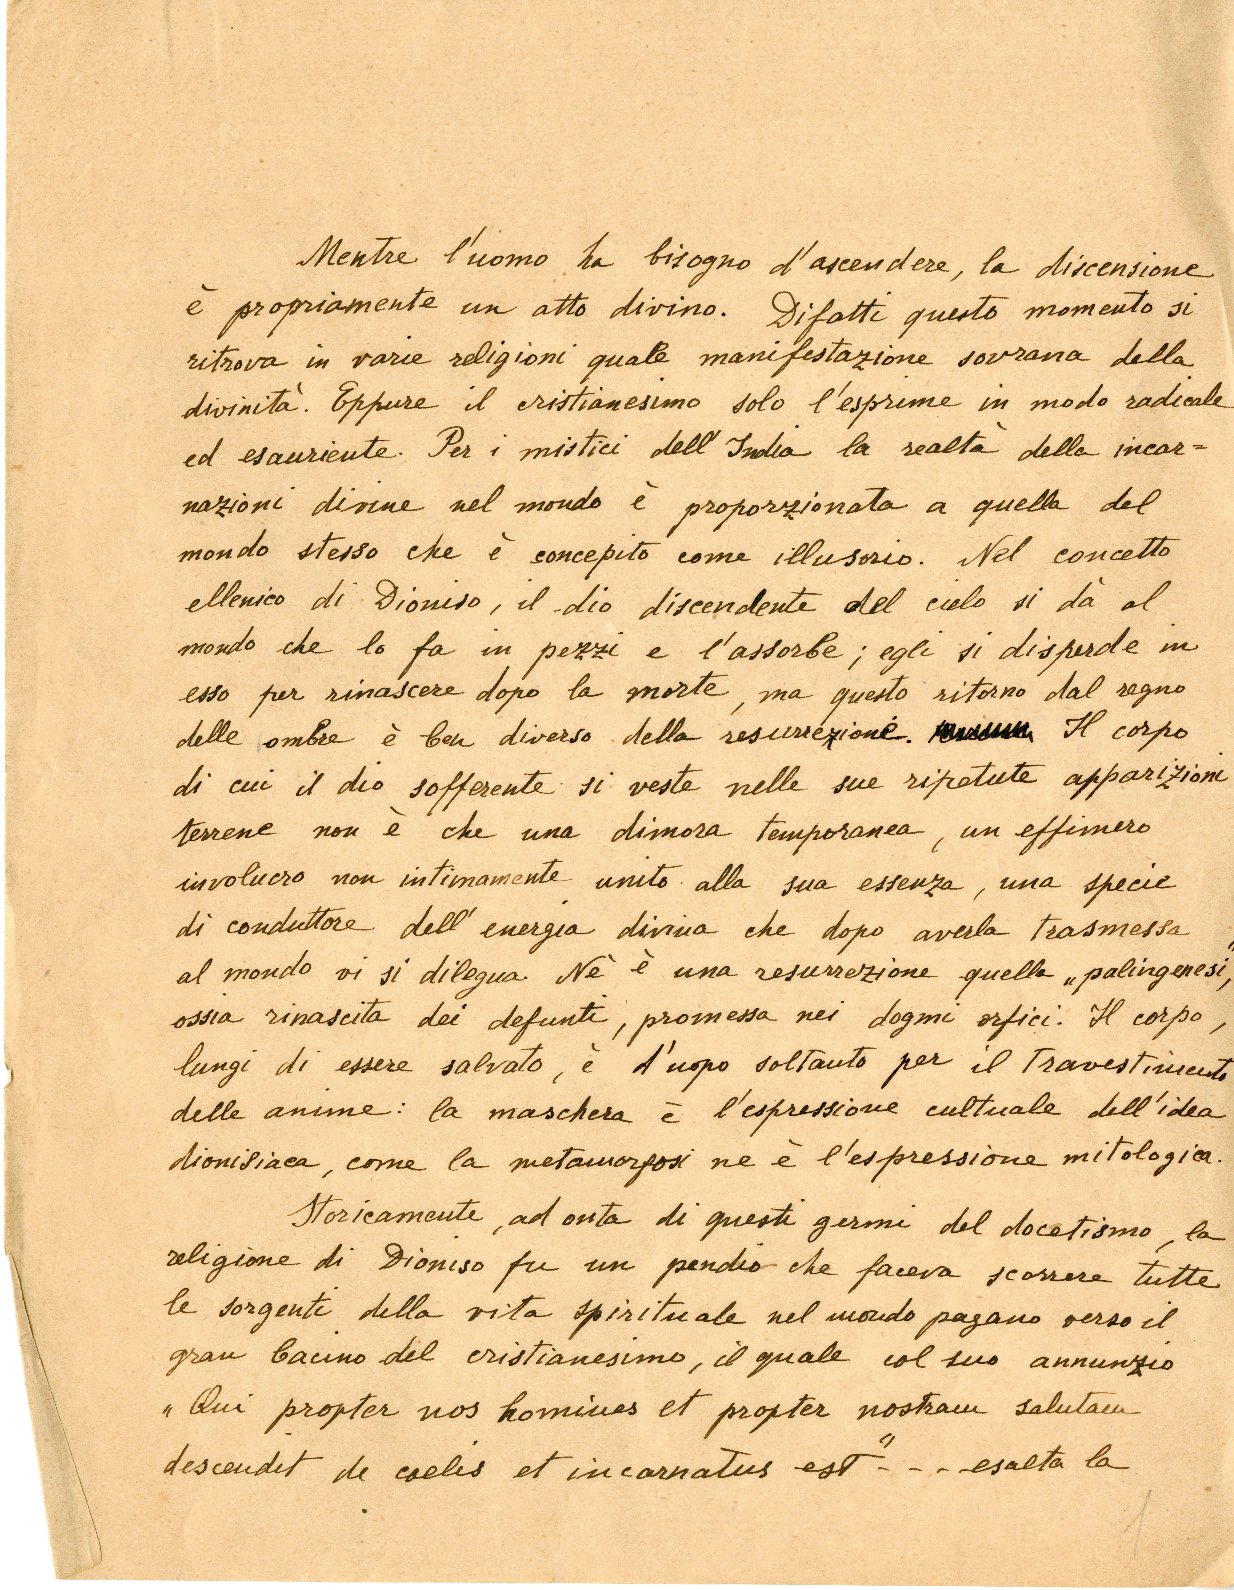 Mentre l'uomo ha bisogno d'ascendere, la discensione
è propriamente un atto divino. Difatti questo momento si
ritrova in varie religioni quale manifestazione sovrana della
divinità. Eppure il cristianesimo solo l'esprime in modo radicale
ed esauriente. Per i mistici dell'India la realtà della incar=
nazioni divine nel mondo è proporzionata a quella del
mondo stesso che è concepito come illusorio. Nel concetto
ellenico di Dioniso, il dio discendente del cielo si dà al
mondo che lo fa in pezzi e l'assorbe; egli si disperde in
esso per rinascere dopo la morte, ma questo ritorno dal regno
delle ombre è ben diverso della resurrezione. Il corpo
di cui il dio sofferente si veste nelle sue ripetute apparizioni
terrene non è che una dimora temporanea, un effimero
involucro non intimamente unito alla sua essenza, una specie
di conduttore dell'energia divina che dopo averla trasmessa
al mondo vi si dilegua. Nè è una resurrezione quella „palingenesi",
ossia rinascita dei defunti, promessa nei dogmi orfici. Il corpo,
lungi di essere salvato, è d'uopo soltanto per il travestimento
delle anime: la maschera è l'espressione cultuale dell'idea
dionisiaca, come la metamorfosi ne è l'espressione mitologica.
Storicamente, ad onta di questi germi del docetismo, la
religione di Dioniso fu un pendio che faceva scorrere tutte
le sorgenti della vita spirituale nel mondo pagano verso il
gran bacino del cristianesimo, il quale col suo annunzio
„Qui propter nos homines et propter nostram salutam
descendit de coelis et incarnatus est" - - - esalta la
1